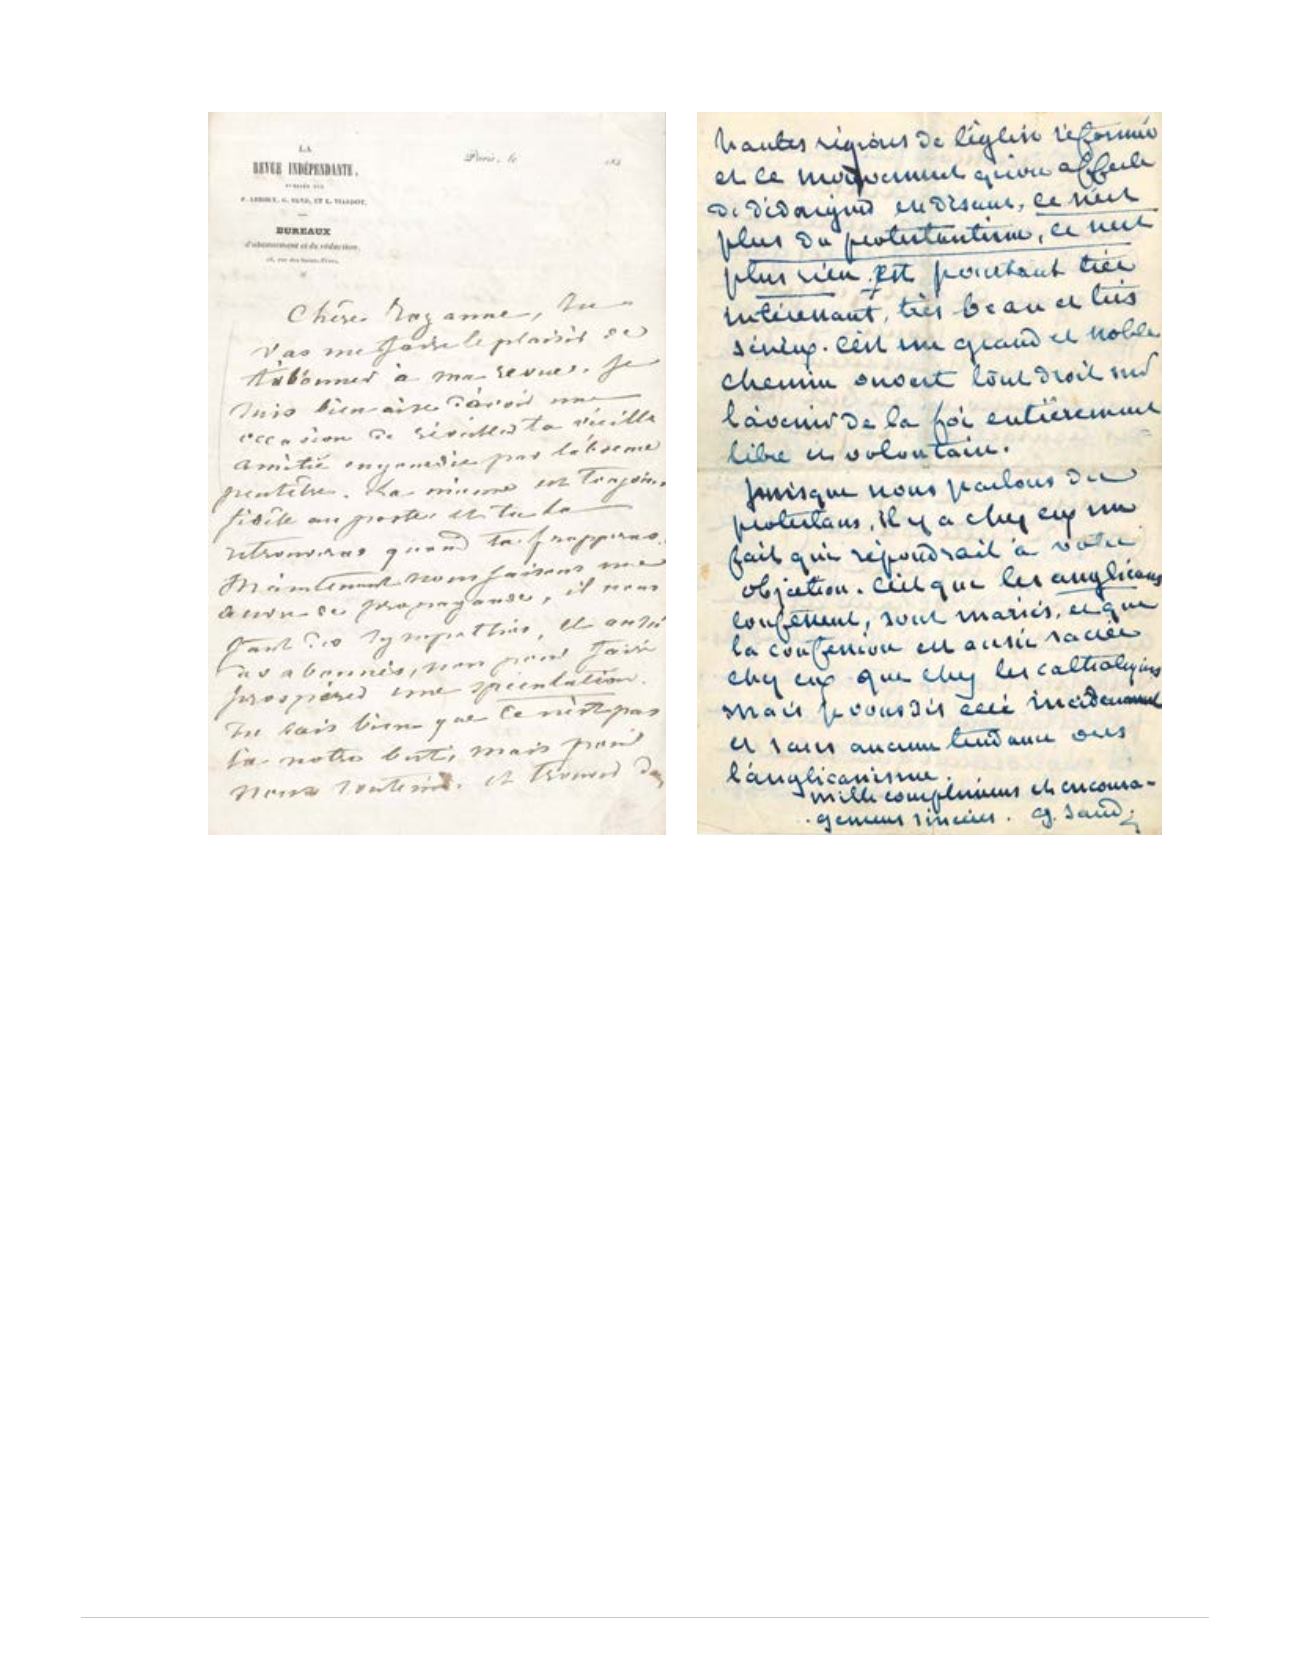 LA
REVUE INDÉPENDANTE,
PUBLIÉE PAR
P. LEROUX, G. SAND, ET L. VIARDOT.
BUREAUX
d'abonnement et de rédaction,
rue des Saints-Pères,
Paris, le 184
Chère Rozanne, tu
vas me faire le plaisir de
t'abonner à ma revue. Je
suis bien aise d'avoir une
occasion de réveiller ta vieille
amitié engourdie par l'absence
peutêtre. La mienne est toujours
fidèle au poste et tu la
retrouveras quand tu frapperas.
Maintenant nous faisons une
œuvre de propagande, il nous
faut des sympathies, et aussi
des abonnés, non pour faire
prospérer une spéculation.
Tu sais bien que ce n'est pas
là notre but, mais pour
nous soutenir. et trouver
hautes régions de l'église réformée
et ce mouvement qu'on affecte
de dédaigner en disant, ce n'est
plus du protestantisme, ce n'est
plus rien est pourtant très
intéressant, très beau et très
sérieux. C'est un grand et noble
chemin ouvert tout droit sur
l'avenir de la foi entièrement
libre et volontaire.
Puisque nous parlons des
protestans, il y a chez eux un
fait qui répondrait à votre
objection. C'est que les anglicans
confessent, sont mariés, et que
la confession est aussi sacrée
chez eux que chez les catholiques
Mais je vous dis ceci incidemment
et sans aucune tendance vers
l'anglicanisme.
Mille complimens et encoura-
gemens sincères. G. Sand